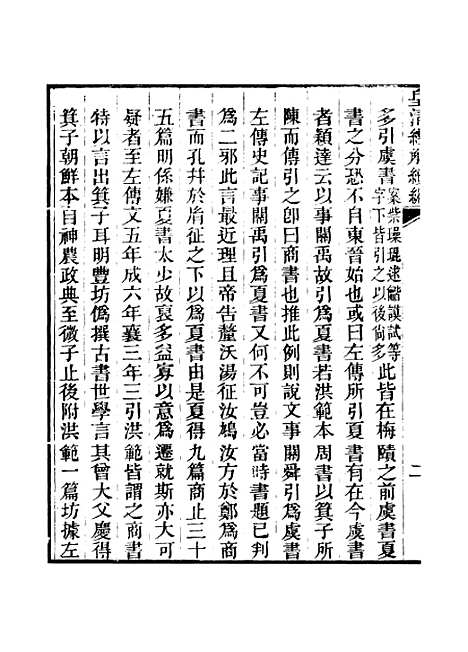 皇清經解續編
二
多引虞書案柴璪琨逑齰謨試等字下皆引之以後尙多此皆在梅賾之前虞書夏
書之分恐不自東晉始也或曰左傳所引夏書有在今虞書
者穎達云以事關禹故引爲夏書若洪範本周書以箕子所
陳而傳引之卽曰商書也推此例則說文事關舜引爲虞書
左傳史記事關禹引爲夏書又何不可豈必當時書題已判
爲二邪此言最近理且帝告釐沃湯征汝鳩汝方於鄭爲商
書而孔幷於胤征之下以爲夏書由是夏得九篇商止三十
五篇明係嫌夏書太少故裒多益寡以意爲遷就斯亦大可
疑者至左傳文五年成六年襄三年三引洪範皆謂之商書
特以言出箕子耳明豐坊僞撰古書世學言其曾大父慶得
箕子朝鮮本自神農政典至微子止後附洪範一篇坊據左